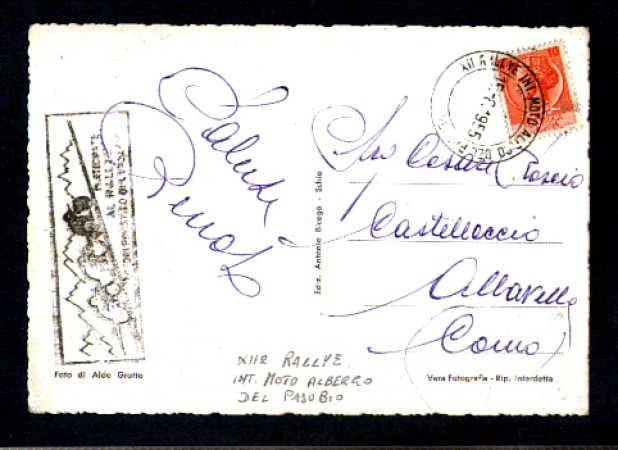 10
XII RALLYE INT. MOTO ALBERGO DEL
1955
AL RALLYE
Saluti
Renato
Sig. Cesare
Castelleccio
Albavilla
(Como)
Ediz. Antonio Bicego - Schio
Foto di Aldo Grotto
XIIº RALLYE
INT. MOTO ALBERGO
DEL PASUBIO
Vera Fotografia - Rip. Interdetta